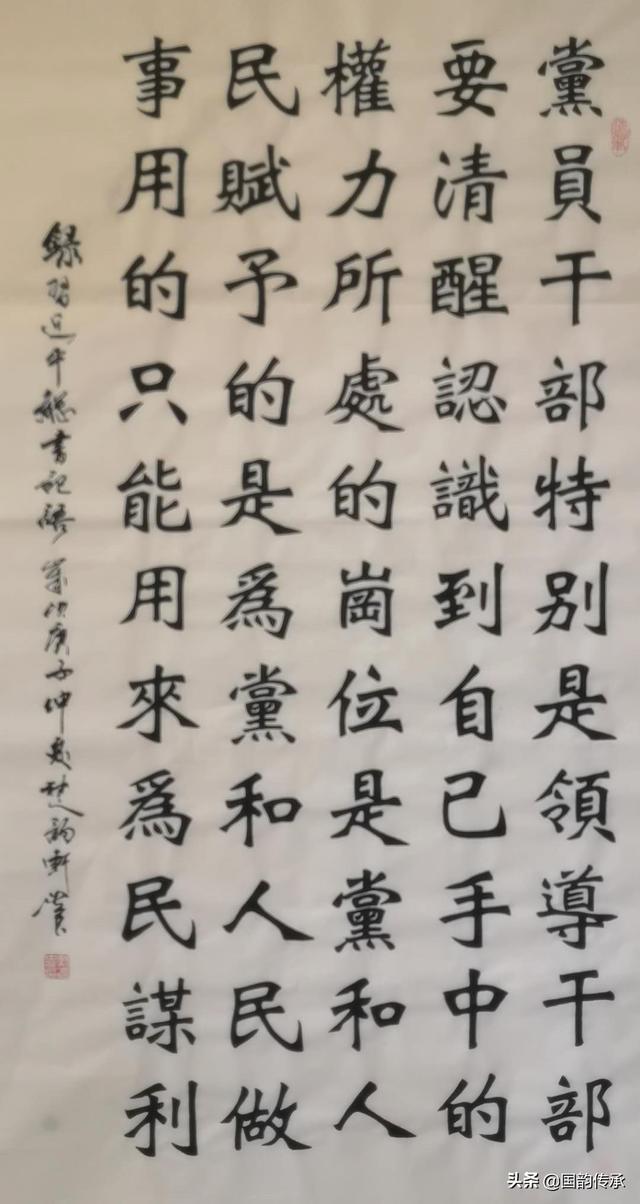 黨員干部特别是領導干部
要清醒認識到自己手中的
權力所處的崗位是黨和人
民賦予的是爲黨和人民做
事用的只能用來爲民謀利
錄習近平總書記語 歲次庚子仲夏楚韵軒
头条 @国韵传承